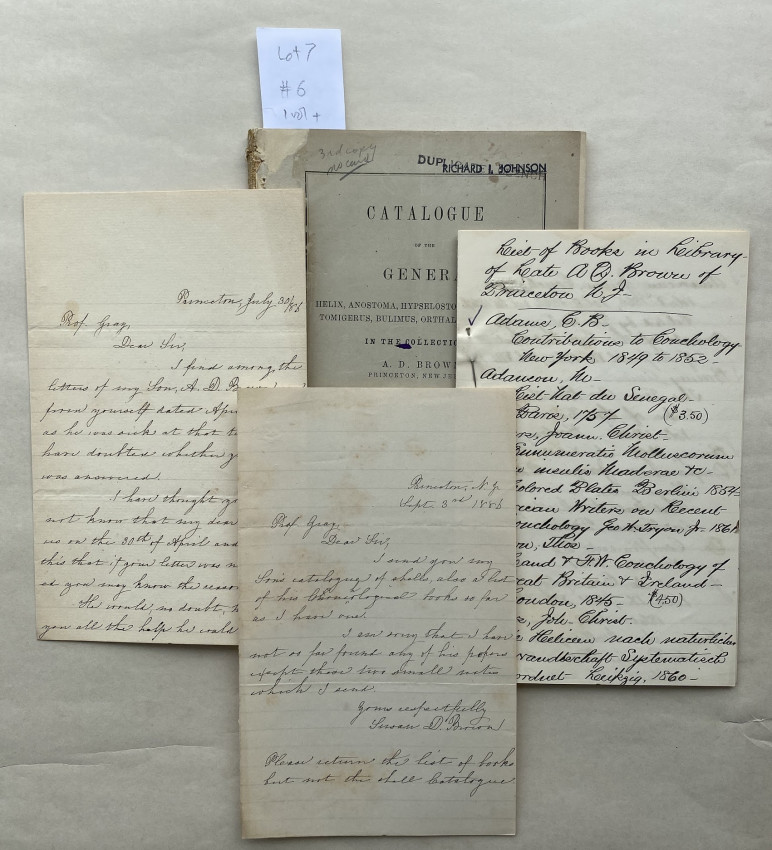 Lot 7
#6
1 vol +
3rd copy
no card
DUPL
RICHARD I. JOHNSON
CATALOGUE
OF THE
GENERA
HELIX, ANOSTOMA, HYPSELOSTO
TOMIGERUS, BULIMUS, ORTHAL
IN THE COLLECTIO
A. D. BROW
PRINCETON, NEW JE
Princeton, July 30
Prof. Gray,
Dear Sir,
I find among the
letters of my Son, A. D. Brown
from yourself dated Apri
as he was sick at that t
have doubted whether y
was answered.
I have thought yo
not know that my dear
us on the 30th of April and
this that if your letter was n
ed you may know the reason
He would, no doubt, h
you all the help he would
Princeton, N.J.
Sept. 3rd 1886
Prof Gray,
Dear Sir,
I send you my
Son's catalogue of shells, also a list
of his Chonological books so far
as I have one.
I am sorry that I have
not so far found any of his papers
except these two small notes
which I send.
Yours respectfully
Susan D. Brown
Please return the list of books
but not the shell Catalogue
List of Books in Library
of Late A D. Brown of
Princeton N J-
✓ Adams, C. B-
Contributions to Conchology
New York 1849 to 1852-
Adanson, M-
Hist Nat du Senegal-
Paris, 1757 ($3.50)
rs, Joann. Christ-
Enumeratio Molluscorum
insulis Maderae &c-
Colored Plates Berlin 1854
rican Writers on Recent
onchology Geo W. Tryon Jr. 1861
n, Thos-
land & F.W. Conchology of
eat Britain & Ireland-
London, 1845. ($4.50)
s, Joh- Christ.
e Heliceen nach naturlichen
randtschaft Systematisch
ordnet Leipzig, 1860-